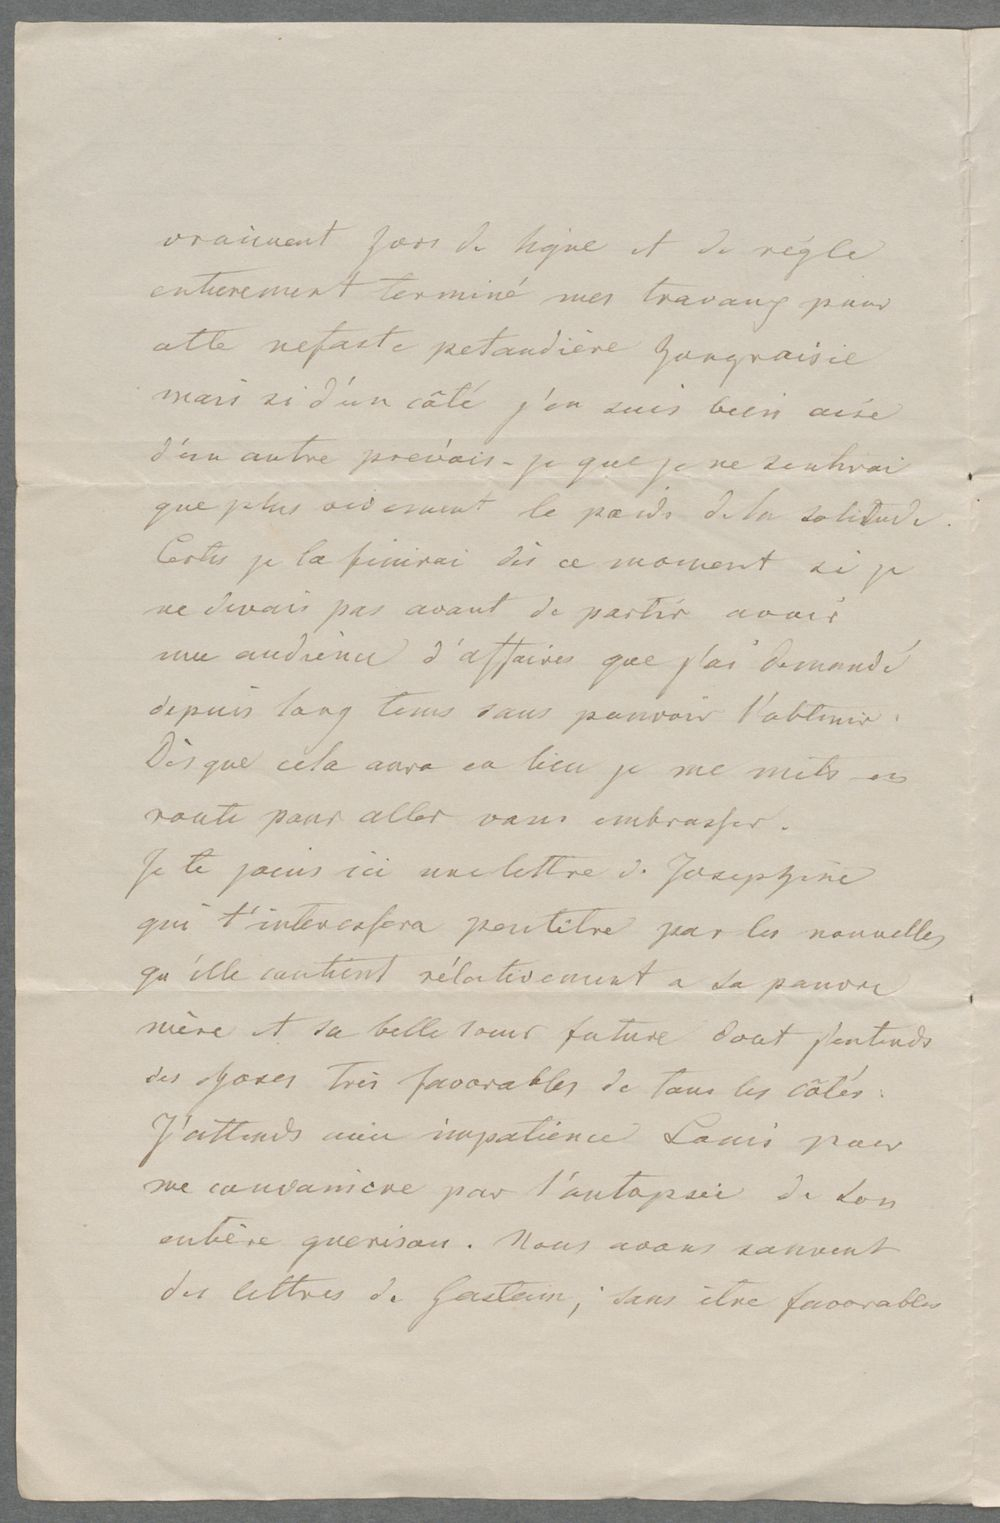 vraiment hors de ligne et de régle
entierement terminé mes travaux pour
cette nefaste petaudière hongroisie
mais si d'un côté j'en suis bien aise
d'un autre prevois-je que je ne sentirai
que plus vivement le poids de la solitude.
Certes je la finirai dès ce moment si je
ne devais pas avant de partir avoir
une audience d'affaires que j'ai demandé
depuis long tems sans pouvoir l'obtenir.
Dès que cela aura eu lieu je me mets en
route pour aller vous embrasser.
Je te joins ici une lettre de Josephine
qui t'interessera peutêtre par les nouvelles
qu'elle contient rélativement a sa pauvre
mère et sa belle soeur future dont j'entends
des choses très favorables de tous les côtés.
J'attends avec impatience Louis pour
me convaincre par l'autopsie de son
entière guerison. Nous avons souvent
des lettres de Gastein; sans être favorables